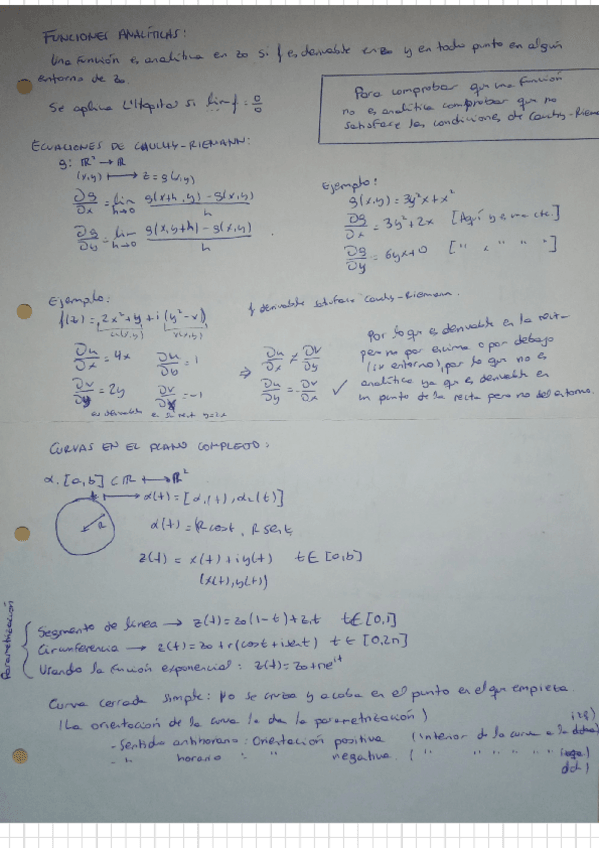 FUNCIONES ANALÍTICAS:
Una función es analítica en z0 si f es derivable en z0 y en todo punto en algún
entorno de z0.
Se aplica L'Hopital si lim f = 0/0
Para comprobar que una función
no es analítica comprobar que no
satisface las condiciones de Cauchy-Riemann
ECUACIONES DE CAUCHY-RIEMANN:
g: ℝ² → ℝ
(x,y) ⟼ z = g(x,y)
∂g/∂x = lim h→0 g(x+h,y) - g(x,y) / h
∂g/∂y = lim h→0 g(x,y+h) - g(x,y) / h
Ejemplo:
g(x,y) = 3y²x + x²
∂g/∂x = 3y² + 2x [Aquí y es una cte.]
∂g/∂y = 6yx + 0 [" " " "]
Ejemplo:
f(z) = 2x² + y + i(y² - x)
u(x,y) v(x,y)
f derivable satisface Cauchy-Riemann.
∂u/∂x = 4x ∂u/∂y = 1
∂v/∂y = 2y ∂v/∂x = -1
⇒ ∂u/∂x ≠ ∂v/∂y
∂u/∂y = -∂v/∂x ✓
es derivable en la rect y=2x
Por lo que es derivable en la recta
pero no por encima o por debajo
(su entorno), por lo que no es
analítica ya que es derivable en
un punto de la recta pero no del entorno.
CURVAS EN EL PLANO COMPLEJO:
α: [a,b] ⊂ ℝ ⟼ ℝ²
t ⟼ α(t) = [α1(t), α2(t)]
R
α(t) = R cos t, R sen t
z(t) = x(t) + iy(t) t ∈ [a,b]
(x(t), y(t))
Parametrización
Segmento de línea → z(t) = z0(1-t) + z1t t ∈ [0,1]
Circunferencia → z(t) = z0 + r(cos t + i sen t) t ∈ [0,2π]
Usando la función exponencial: z(t) = z0 + re^it
Curva cerrada simple: No se cruza y acaba en el punto en el que empieza.
(La orientación de la curva la da la parametrización)
- Sentido antihorario: Orientación positiva (interior de la curva a la izq)
- " horario " " negativa. (" " " " " dch)